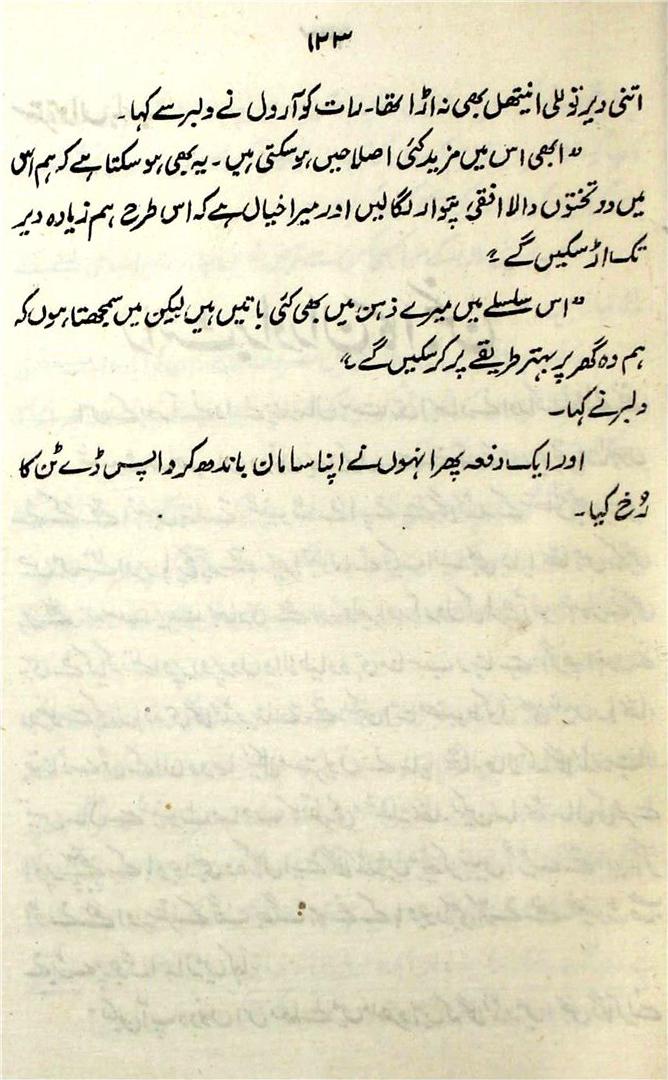 ۱۲۳
اتنی دیر تو للی انیتھل بھی نہ اڑا تھا۔ رات کو آرول نے ولبر سے کہا۔
"ابھی اس میں مزید کئی اصلاحیں ہو سکتی ہیں۔ یہ بھی ہو سکتا ہے کہ ہم اس
میں دو تختوں والا افقی پتوار لگا لیں اور میرا خیال ہے کہ اس طرح ہم زیادہ دیر
تک اڑ سکیں گے"
"اس سلسلے میں میرے ذہن میں بھی کئی باتیں ہیں لیکن میں سمجھتا ہوں کہ
ہم وہ گھر پر بہتر طریقے پر کر سکیں گے۔"
ولبر نے کہا۔
اور ایک دفعہ پھر انہوں نے اپنا سامان باندھ کر واپس ڈے ٹن کا
رُخ کیا۔